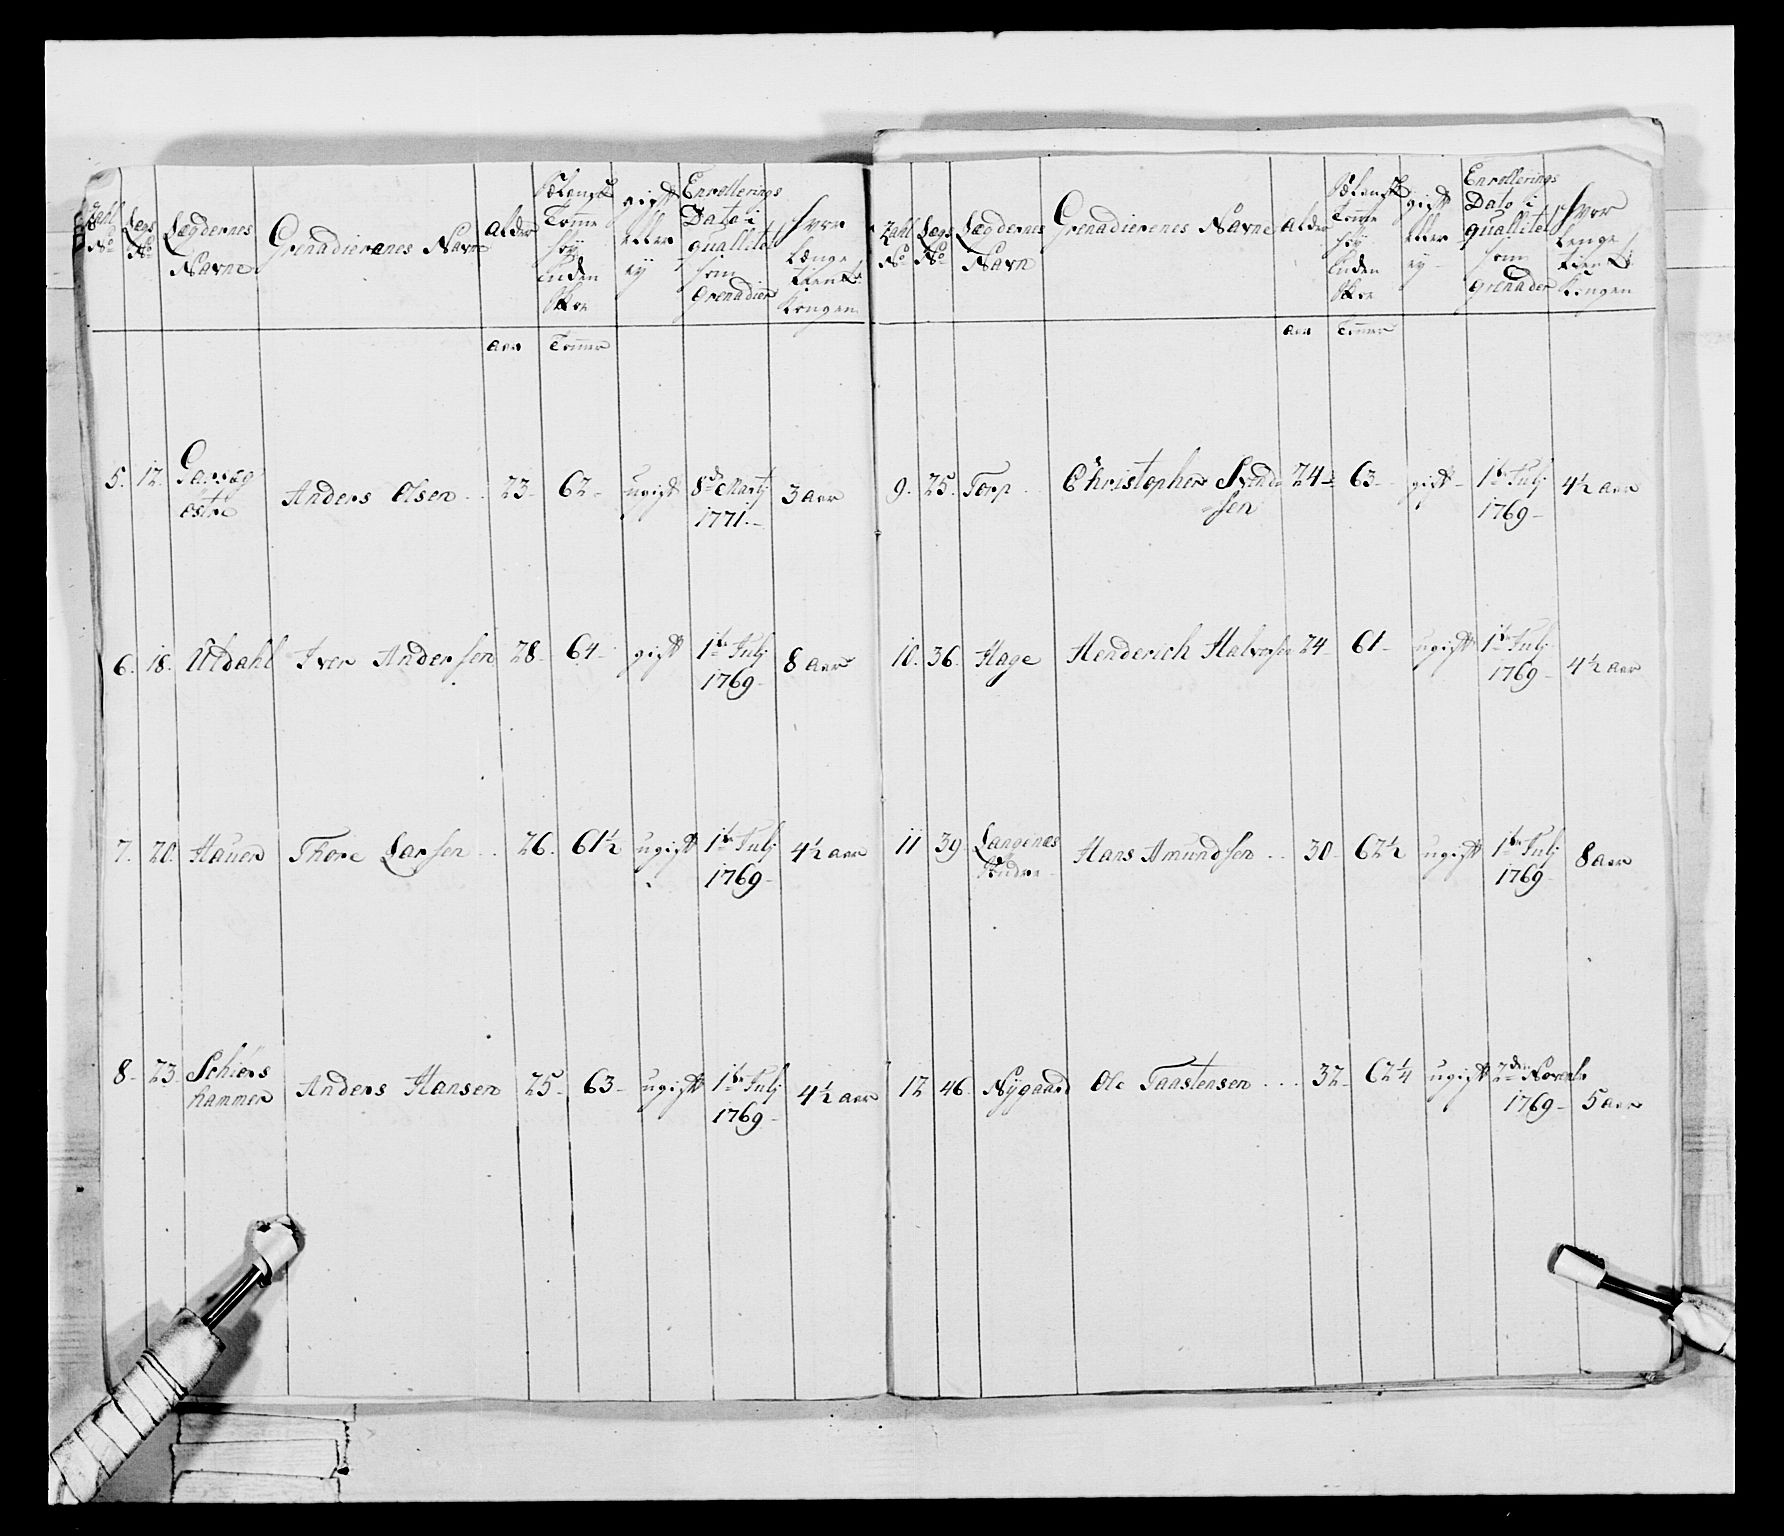 Zahl No
Legs No
Lægdernes Navne
Grenadierenes Navne
Alder
Sælansk Tomme høy uden Skoe
gift eller ey
Enrollerings Dato i quallitet som Grenadier
hvor længe tient Kongen
aar Tommer
5. 12. Østre Anders Olsen .. 23 62 ugift 8de Martij 1771. 3 aar
6. 18. Utdahl Iver Andersen 28 64 gift 1te Julj 1769 8 aar
7. 20. Hauen Thore Larsen .. 26. 61½ ugift 1te Julj 1769 4½ aar
8 23 Schiørshammer Anders Hansen 25 63 ugift 1te Julj 1769 4½ aar
Zahl No
Legs No
Lægdernes Navn
Grenadierenes Navne
Alder
Sælansk Tomme høy uden Skoe
gift eller ey
Enrollerings Dato i quallitet som grenader
hvor lenge tient Kongen
aar Tommer
9. 25. Torp Christopher Svend-sen 24 63 gift 1te Julj 1769 4½ aar
10. 36. Hage Henderich Halvorsen 24 61 ugift 1te Julj 1769 4½ aar
11 39 Langenæs Søndre Hans Amundsen .. 30 62½ ugift 1te Julj 1769 8 aar
12 46 Nÿgaard Ole Taastensen ... 32 62¼ ugift 2den Novembr 1769 5 aar